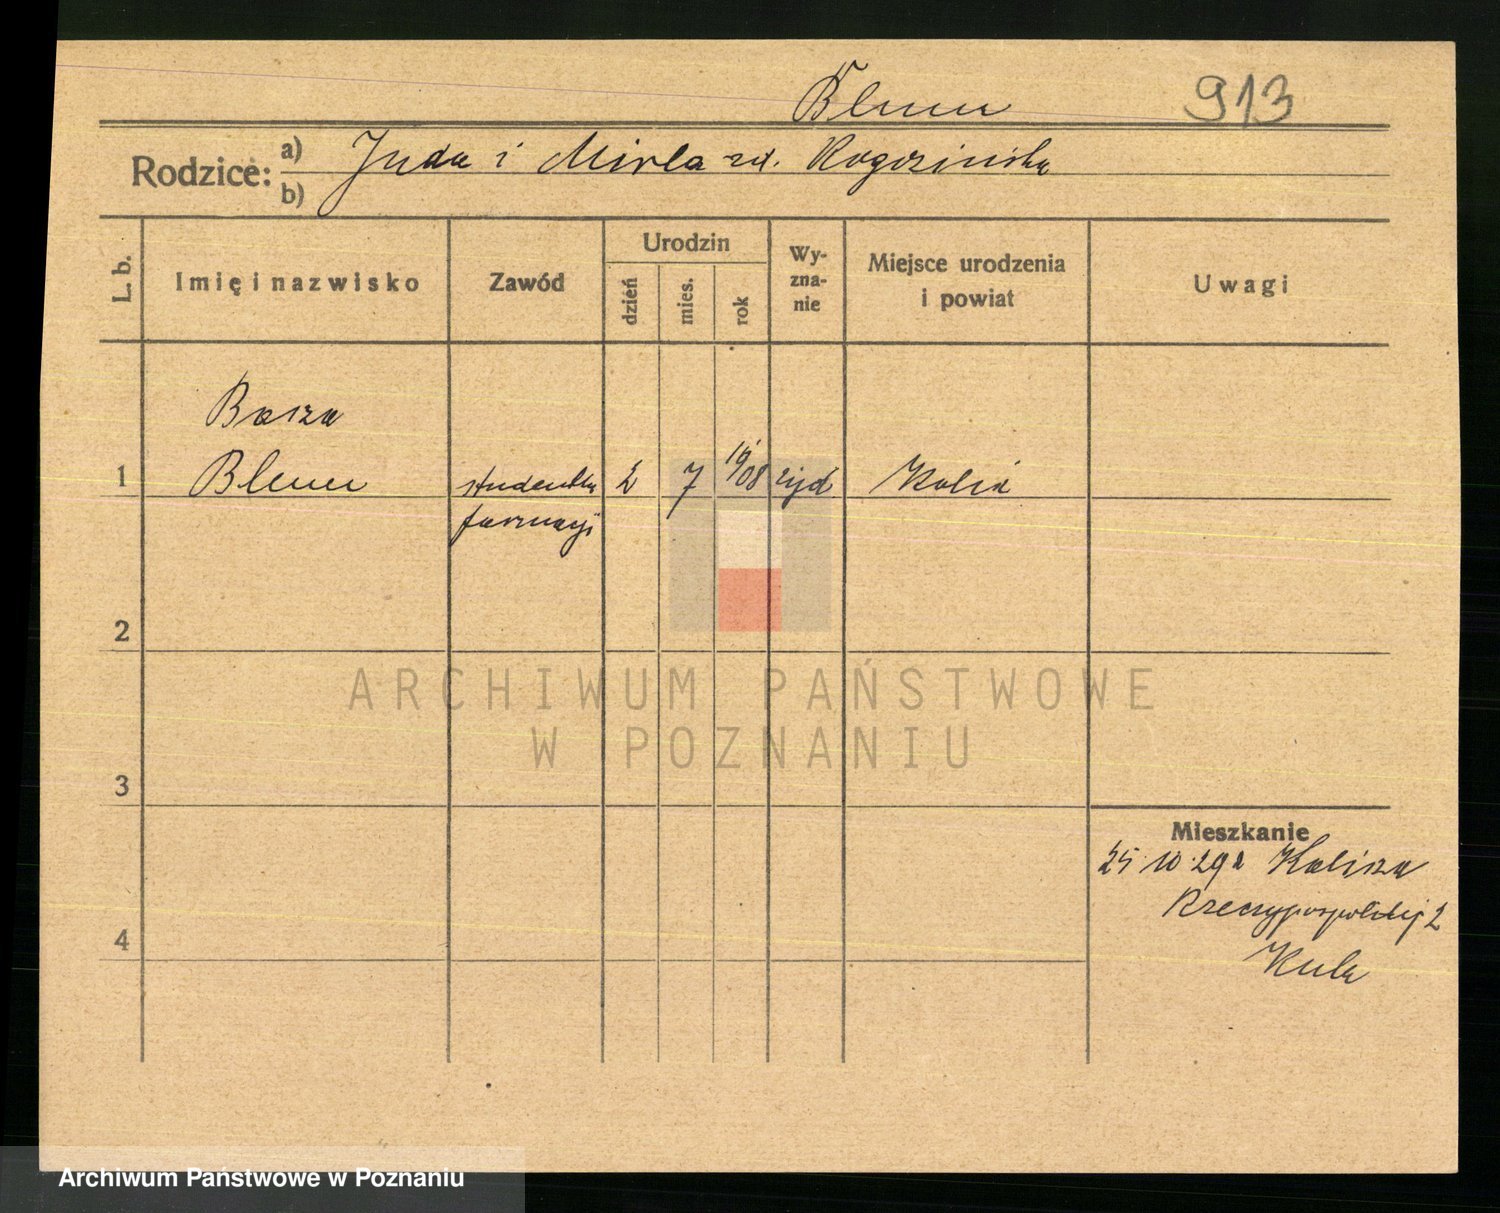 Blum 913
Rodzice: a) Juda i Mirla zd. Rogozińska
b)
L. b. Imię i nazwisko Zawód Urodzin dzień mies. rok Wyznanie Miejsce urodzenia i powiat Uwagi
Basza
1 Blum studentka 2 7 19/08 żyd
farmacji
2
ARCHIWUM PAŃSTWOWE
W POZNANIU
3
Mieszkanie
25.10.29 z Kalisza
4 Rzeczypospolitej 2
Archiwum Państwowe w Poznaniu